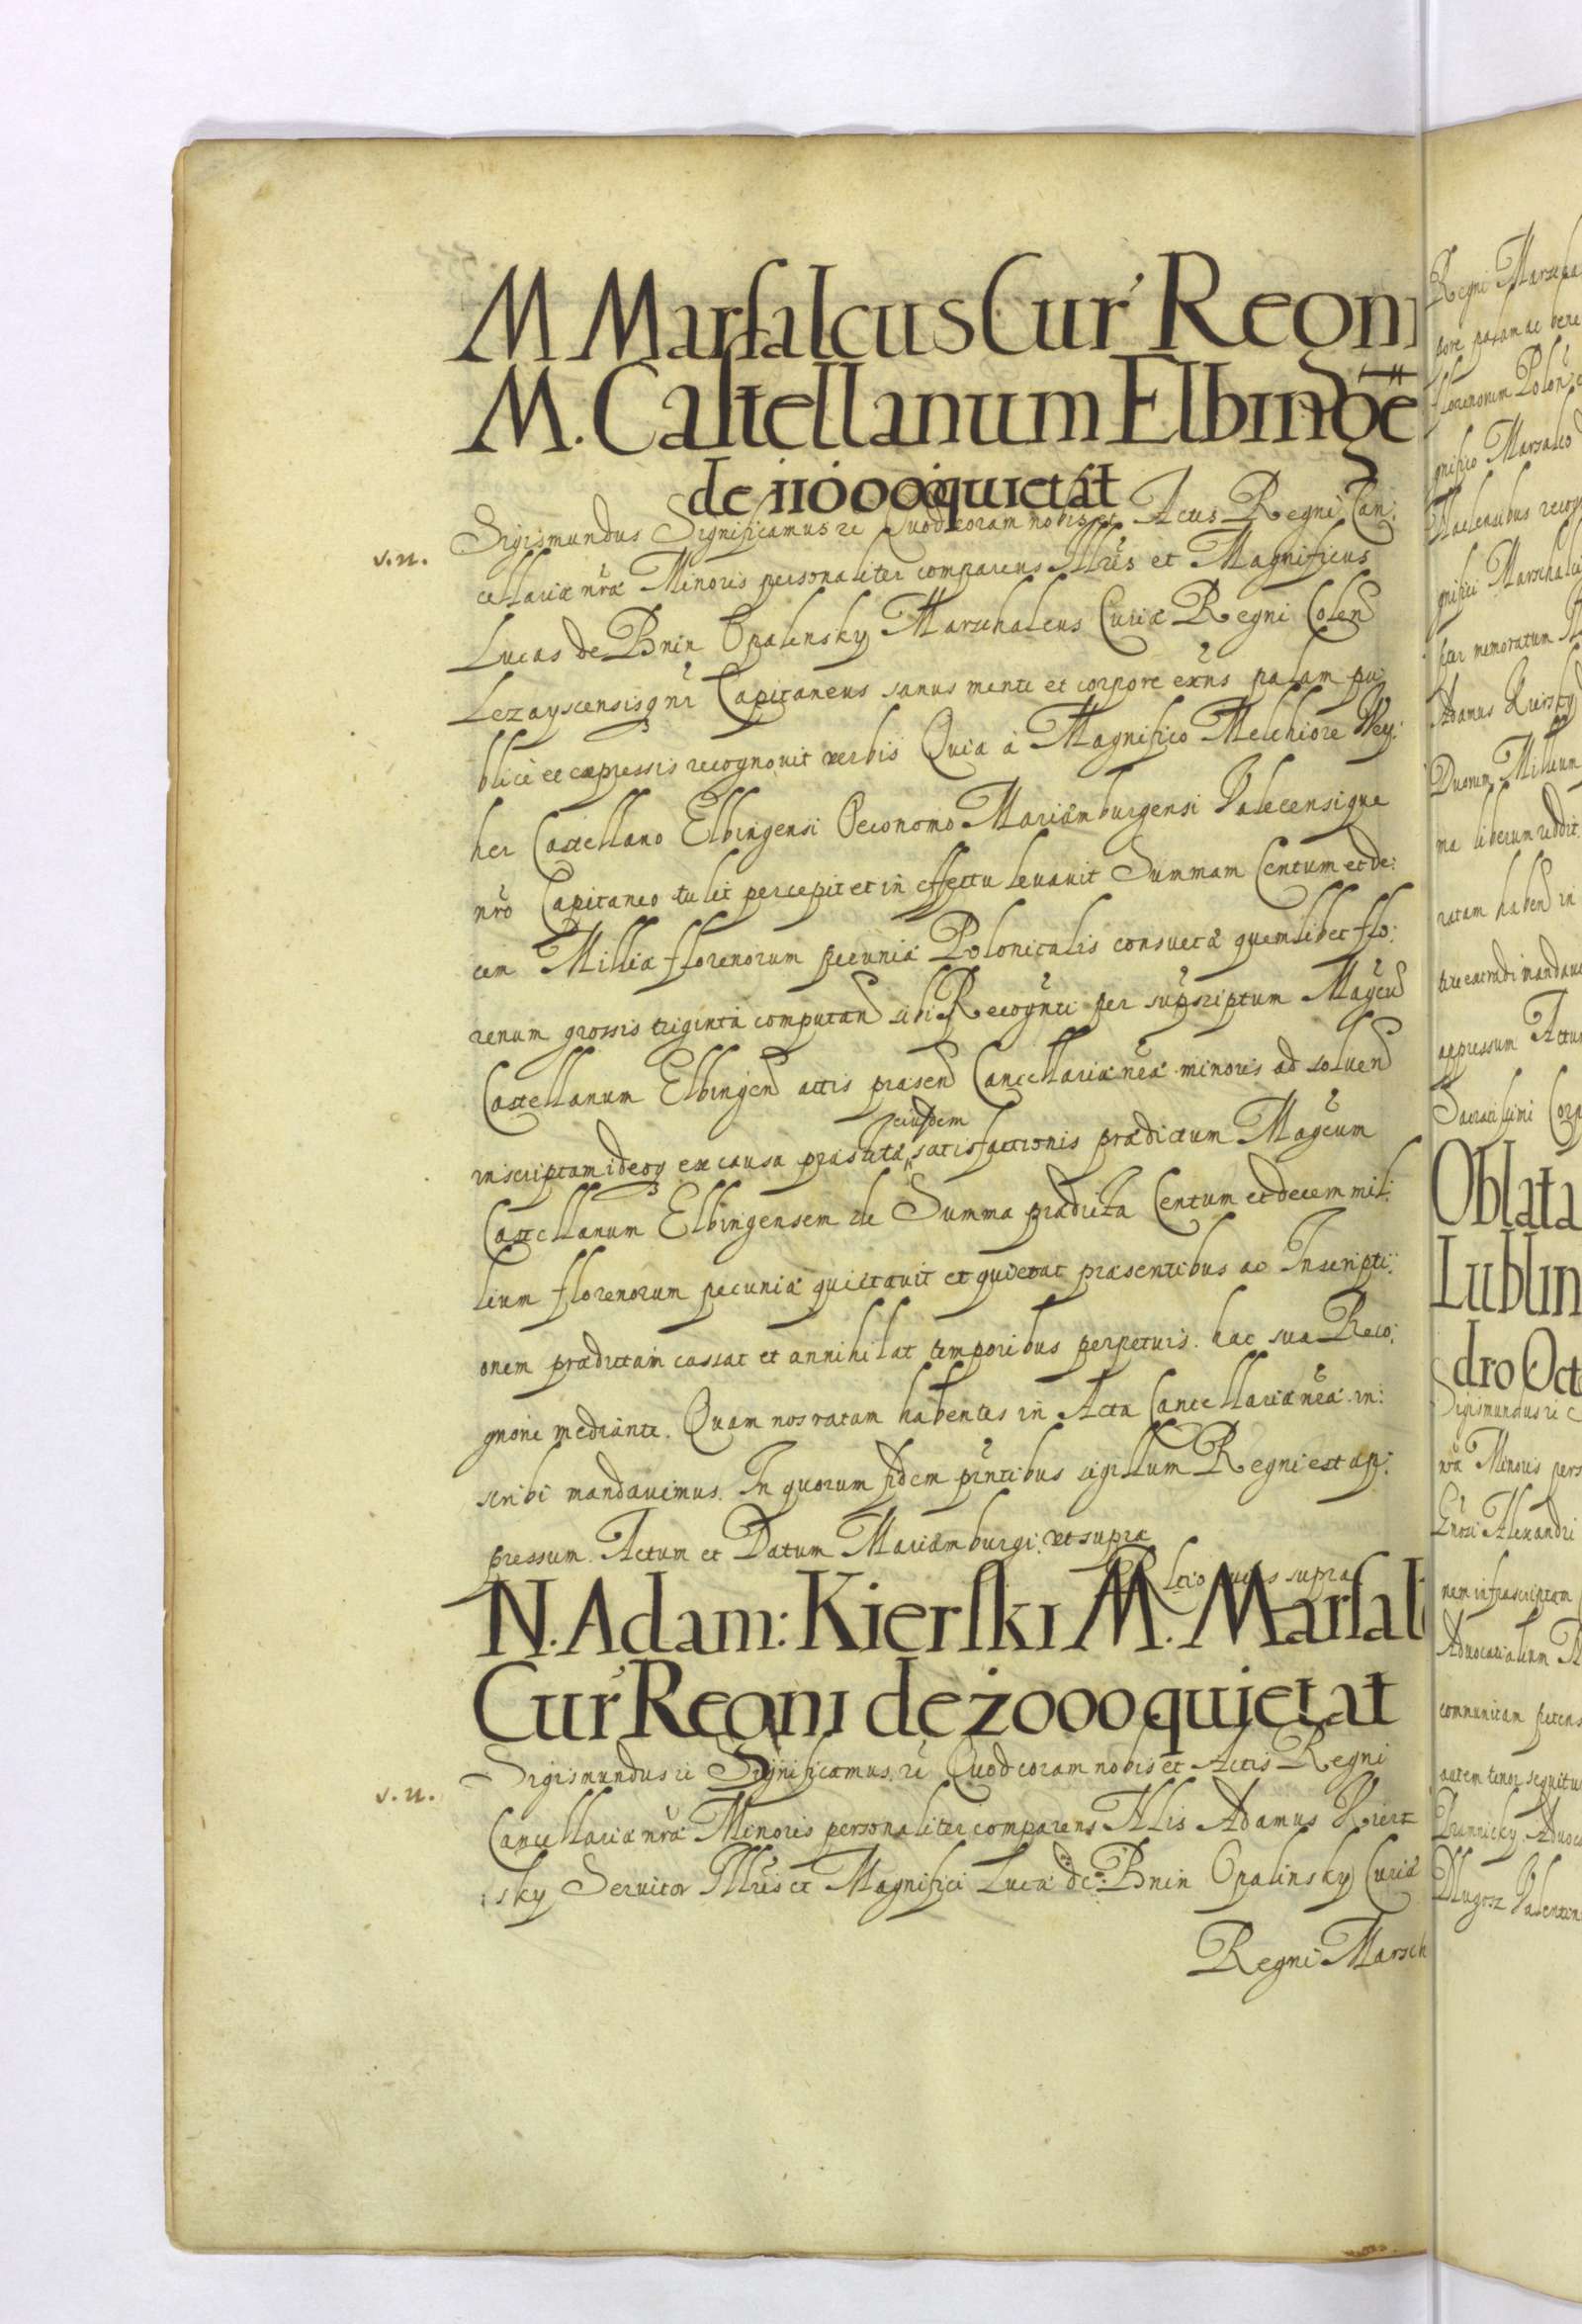 M Marsalcus Cur Regni
M. Castellanum Elbinge
de 110000 quietat
s.n.
Sigismundus Significamus ɾc Quod coram nobis et Actis Regni Can:
cellariæ nr̃æ Minoris personaliter comparens Illris et Magnificus
Lucas de Bnin Opalensky Marschalcus Curiæ Regni Colen
Lezayscensisq nr Capitaneus sanus mente et corpore exns palam pu
blicè et expressis recognovit verbis Quia à Magnifico Melchiore Wey:
her Castellano Elbingensi Oeconomo Mariæmburgensi Valecensique
nrõ Capitaneo tulit percepit et in effectu levavit Summam Centum et de:
cem Millia florenorum pecuniæ Polonicalis consuetæ quemlibet flo:
renum grossis triginta computan sibi Recognti per supscriptum Magcu
Castellanum Elbingen actis præsen Cancellariæ nr̃æ minoris ad solven
eiusdem
inscriptam ideoq ex causa præstitæ satisfactionis prædictum Magcum
Castellanum Elbingensem de Summa prædicta Centum et decem mil:
lium florenorum pecuniæ quietavit et quietat præsentibus ac Inscripti:
onem prædictam cassat et annihilat temporibus perpetuis. hac sua Reco:
gnone mediante. Quam nos ratam habentes in Acta Cancellariæ nr̃æ in:
scribi mandavimus. In quorum fidem pr̃ntibus sigillum Regni est ap:
pressum. Actum et Datum Mariæmburgi. ut supra
supra
N. Adam: Kierski M. Marsal
Cur Regni de 2000 quietat
s.n.
Sigismundus ɾc Significamus ɾc Quod coram nobis et Actis Regni
Cancellariæ nr̃æ Minoris personaliter comparens Nlis Adamus Kierz
:sky Servitor Illris et Magnifici Lucæ de Bnin Opalinsky Curiæ
Regni Marsch
Regni Marscha
pore palam ac bene
florenorum Polon
gnifico Marsalco
gnifici Marschalci
Adamus Kiersky
Duorum Millium
na liberum reddit
ratam haben in
appressum Actum
Oblata
Lublin
dro Oct
Sigismundus ɾc
nr̃æ Minoris pers
Alexandri
nem infrascriptam
communitam petens
autem tenor sequitur
Dlugosz Valentin